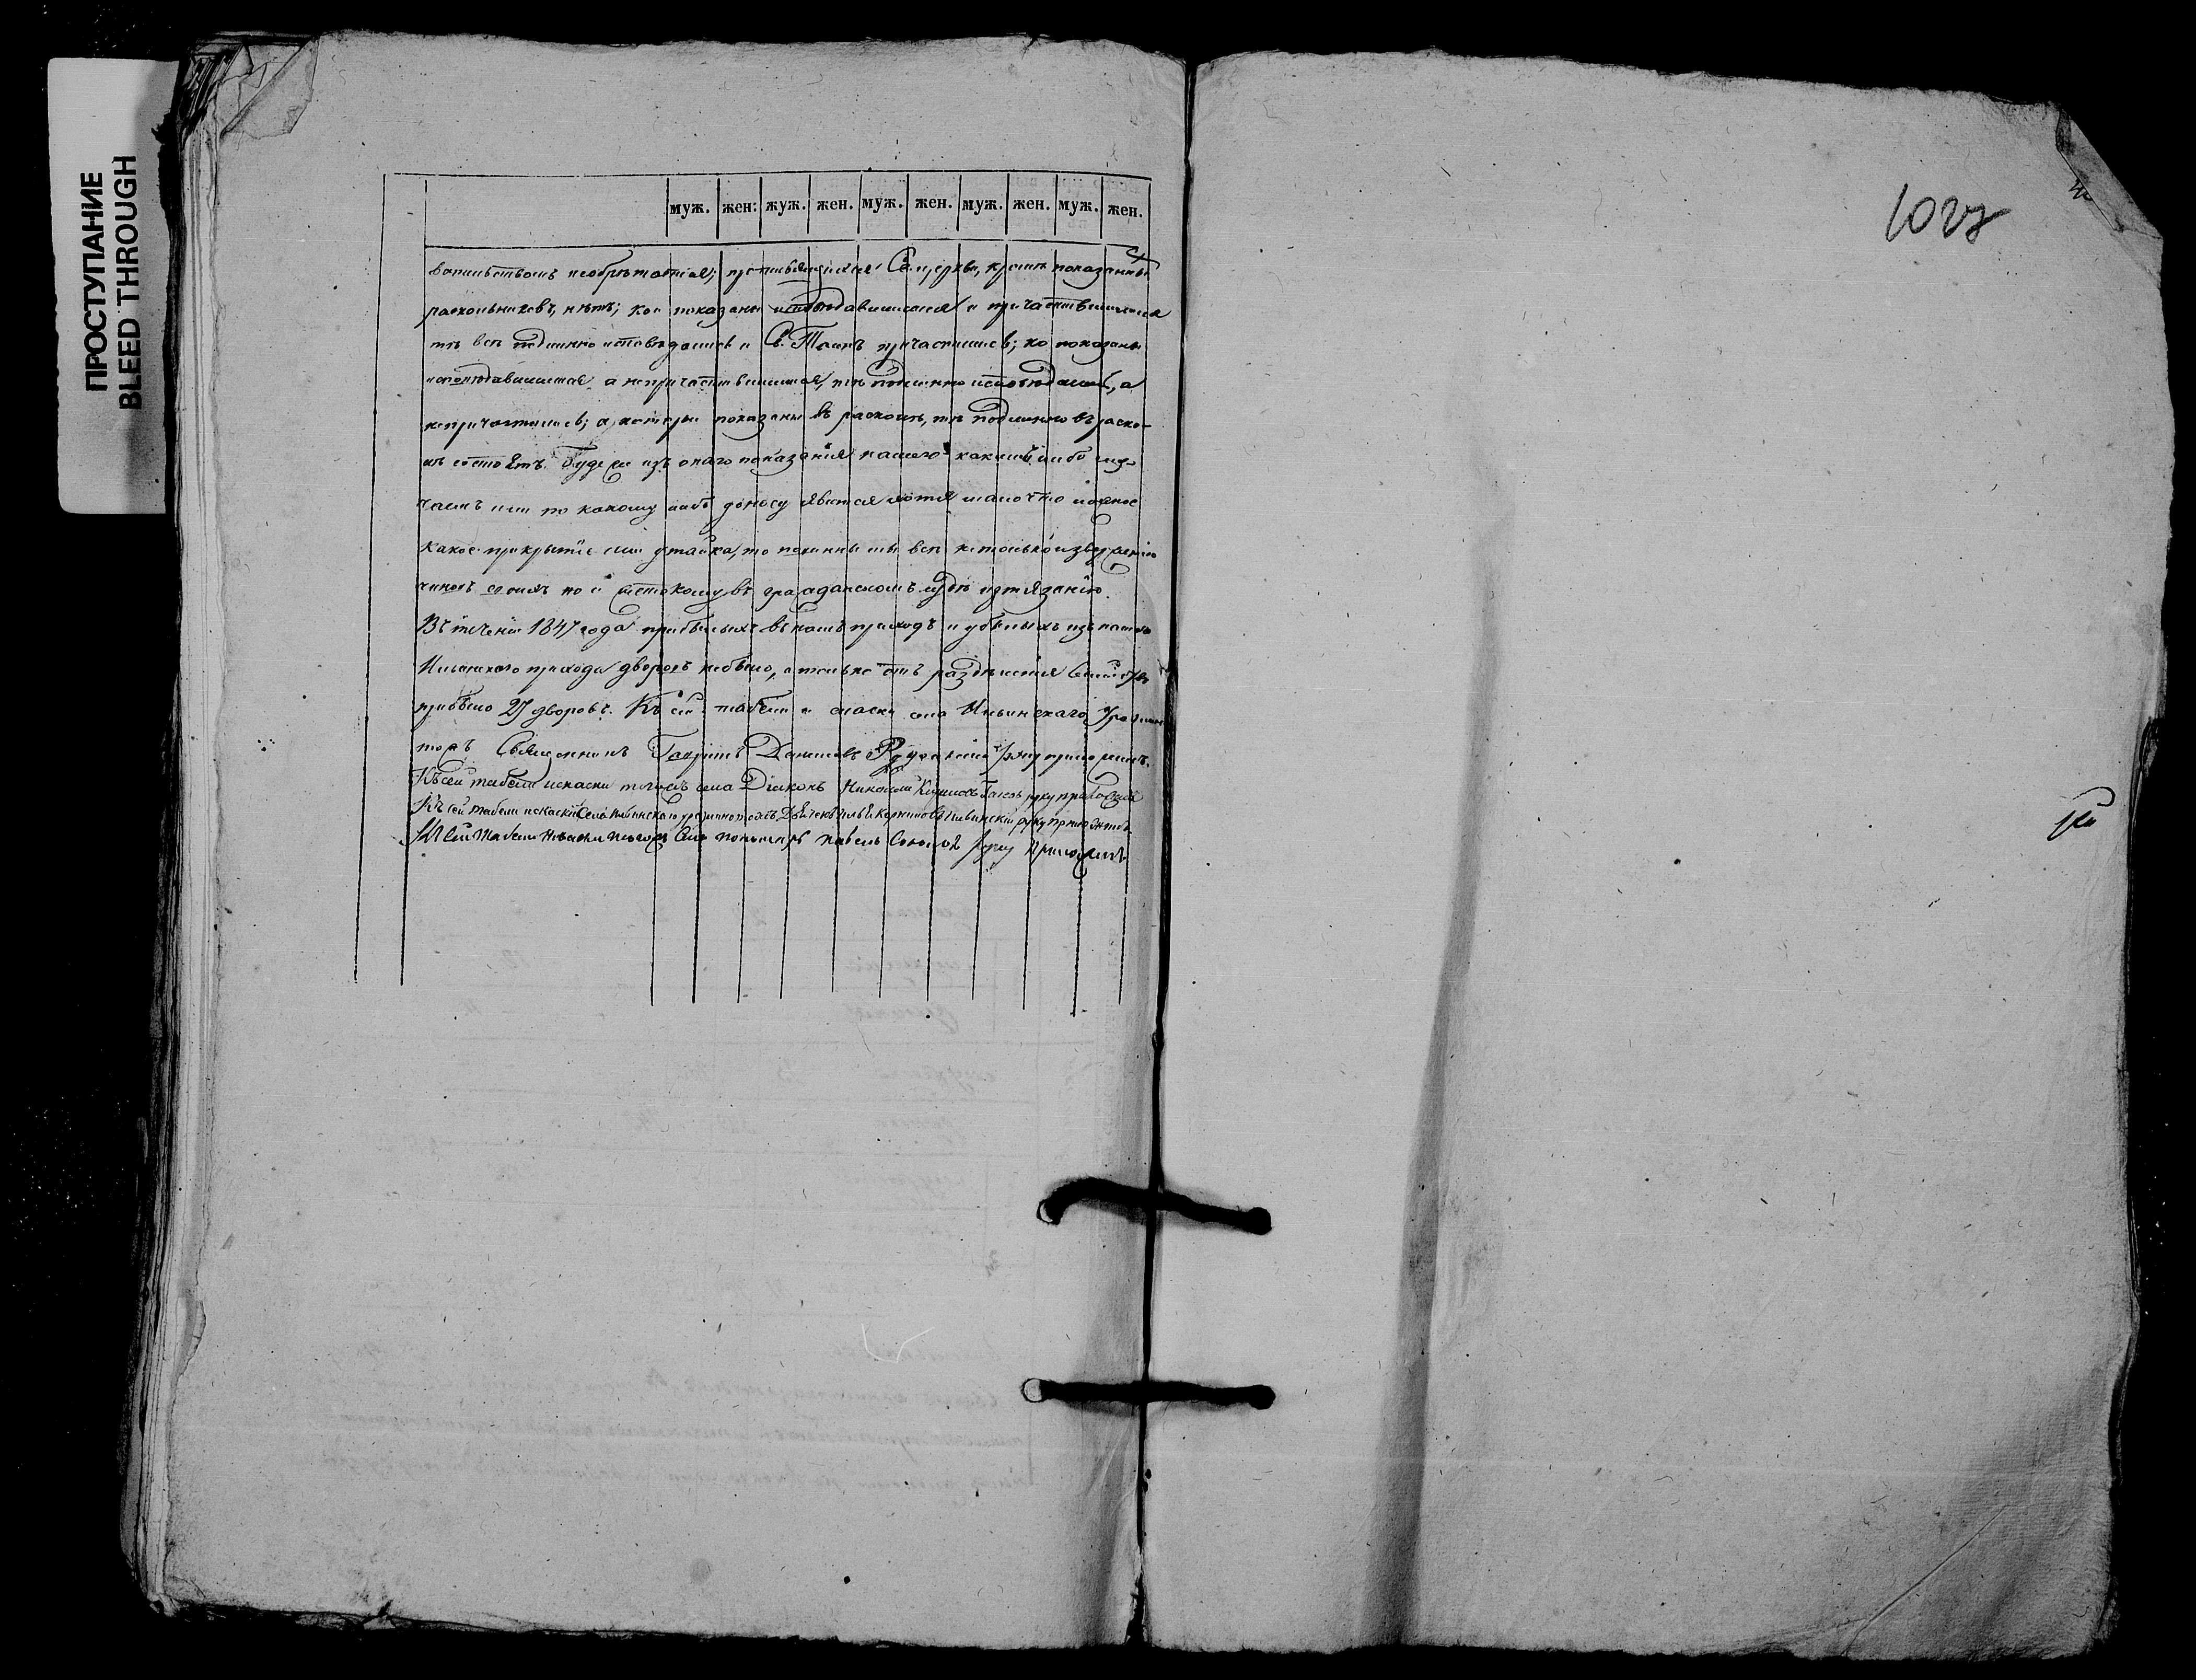 ПРОСТУПАНИЕ
BLEED THROUGH
муж. жен: жуж. жен. муж. жен. муж. жен. муж. жен.
1027
необрѣтается; Св. церкви, кромѣ показанныхъ
раскольниковъ, нѣтъ; кои показаны исповѣдавшимися и причастившимися
тѣ всѣ подлинно исповѣдались и Св. Таинъ причастились; кои показаны
исповѣдавшимися а непричастившимися, тѣ подлинно исповѣдались, а
непричастились; а которые показаны въ расколѣ, тѣ подлинно въ раско-
лѣ состоятъ. Буде же изъ онаго показанія нашего какимъ либо слу-
чаемъ или по какому либо доносу явится хотя малое что ложное
какое прикрытіе или утайка, то повинны мы всѣ нетолько изверженію
чиновъ своихъ но и жестокому въ гражданскомъ судѣ истязанію.
Въ теченіи 1847 года прибылыхъ въ нашъ приходъ и убылыхъ изъ нашего
Ильинскаго прихода дворовъ небыло, а только отъ раздѣленія семействъ
прибыло 27 дворовъ. Къ сей табели и сказки села Ильинскаго
Священникъ Гавріилъ Даниловъ руку приложилъ.
Къ сей табели и сказки тогожъ села Діаконъ Николай руку приложилъ
Къ сей табели и сказки села Ильинскаго Дьячекъ Илья Ильинскій руку приложилъ
Къ сей табели и сказки тогожъ села пономарь Павелъ Соколовъ руку приложилъ